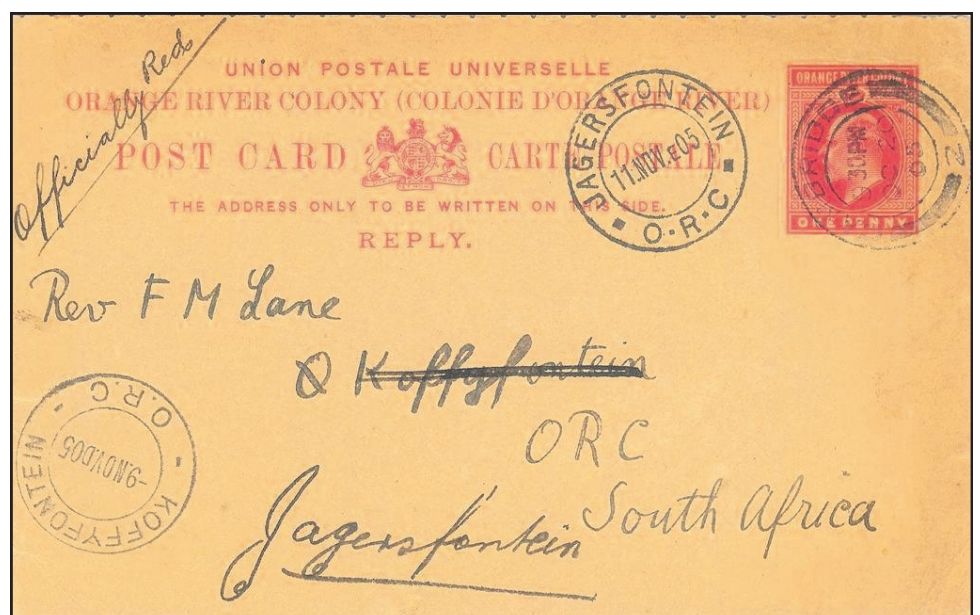 Officially Red
UNION POSTALE UNIVERSELLE
ORANGE RIVER COLONY (COLONIE D'OR RIVIER)
POST CARD CARTE POSTALE
THE ADDRESS ONLY TO BE WRITTEN ON THIS SIDE.
REPLY.
JAGERSFONTEIN
11.NOV.E05
O.R.C
ORANGE RIVER COLONY
ONE PENNY
BRIDGE
30PM
Rev F M Lane
Koffyfontein
ORC
South Africa
Jagersfontein
KOFFYFONTEIN
-9NOVD05
O.R.C